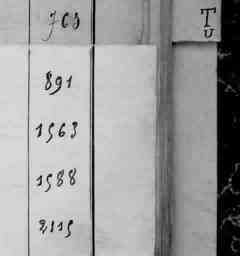 703
T
U
891
1563
1588
2115